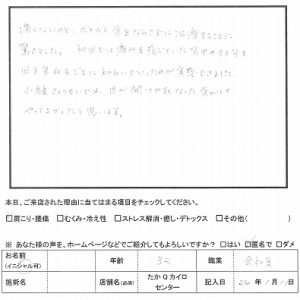 痛くないのに、ボキボキ骨をならさずに治療することに
驚きました。初回では痛みを感じていた背中の部分も
回を重ねるごとに和らいでいくのが実感できました。
小顔きょうせいでは、目が開けやすくなった気がして
やってよかったと思います。
本日、ご来店された理由に当てはまる項目をチェックしてください。
☑肩こり・腰痛 □むくみ・冷え性 □ストレス解消・癒し・デトックス □その他( )
※ あなた様の声を、ホームページなどでご紹介してもよろしいですか? □はい ☑匿名で □ダメ
お名前 (イニシャル可) 年齢 32 職業 会社員
店舗名(必須) たかQカイロセンター 記入日 24年 1月 11日